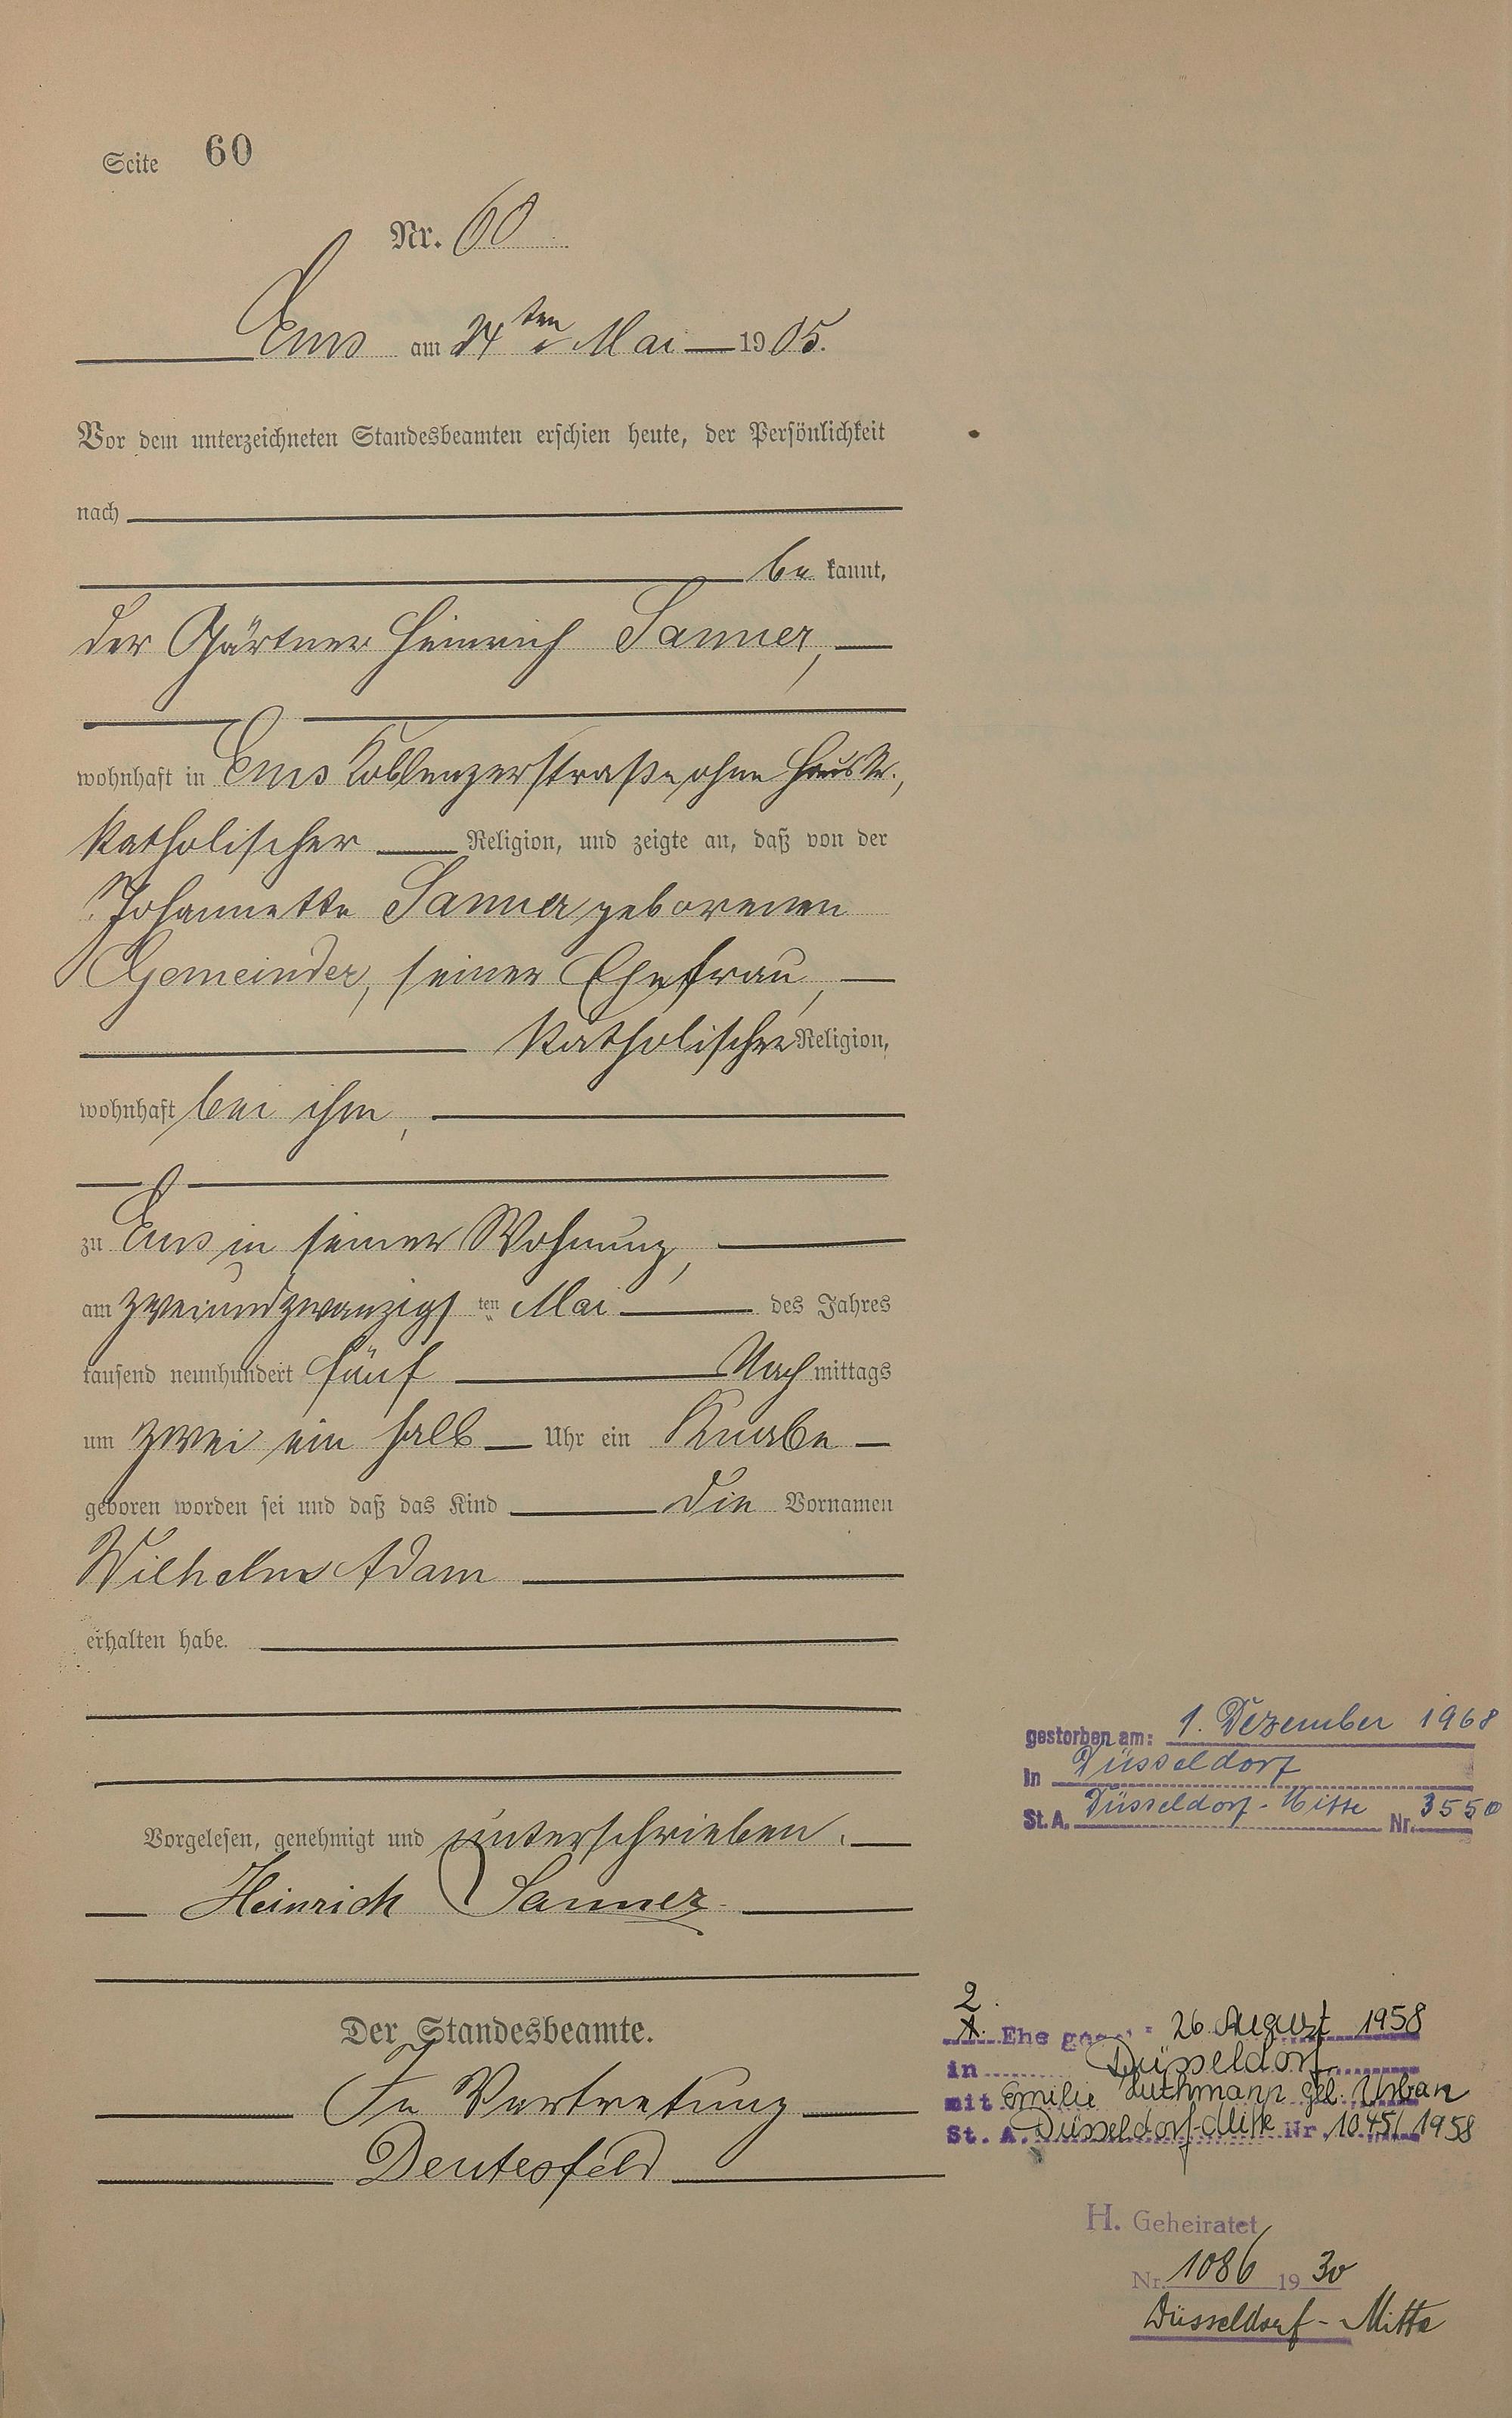 Seite 60
Nr. 60
Ems am 24ten Mai 1905.
Vor dem unterzeichneten Standesbeamten erschien heute, der Persönlichkeit
nach
be kannt,
der Gärtner Heinrich Sanner,
wohnhaft in Ems Koblenzerstraße ohne Haus Nr.,
katholischer Religion, und zeigte an, daß von der
Johannette Sanner geborenen
Gemeinder, seiner Ehefrau,
katholischer Religion,
wohnhaft bei ihm,
zu Ems in seiner Wohnung,
am zweiundzwanzigsten Mai des Jahres
tausend neunhundert fünf Nach mittags
um zwei ein halb Uhr ein Knabe
geboren worden sei und daß das Kind die Vornamen
Wilhelm Adam
erhalten habe.
Vorgelesen, genehmigt und unterschrieben.
Heinrich Sanner
Der Standesbeamte.
In Vertretung
Deutesfeld
gestorben am: 1. Dezember 1968
in Düsseldorf
St. A. Düsseldorf-Mitte Nr. 3550
2. Ehe 26 August 1958
in Düsseldorf
mit Emilie Luthmann geb. Urban
St. A. Düsseldorf-Mitte Nr. 1045/1958
H. Geheiratet
Nr. 1086 1930
Düsseldorf-Mitte